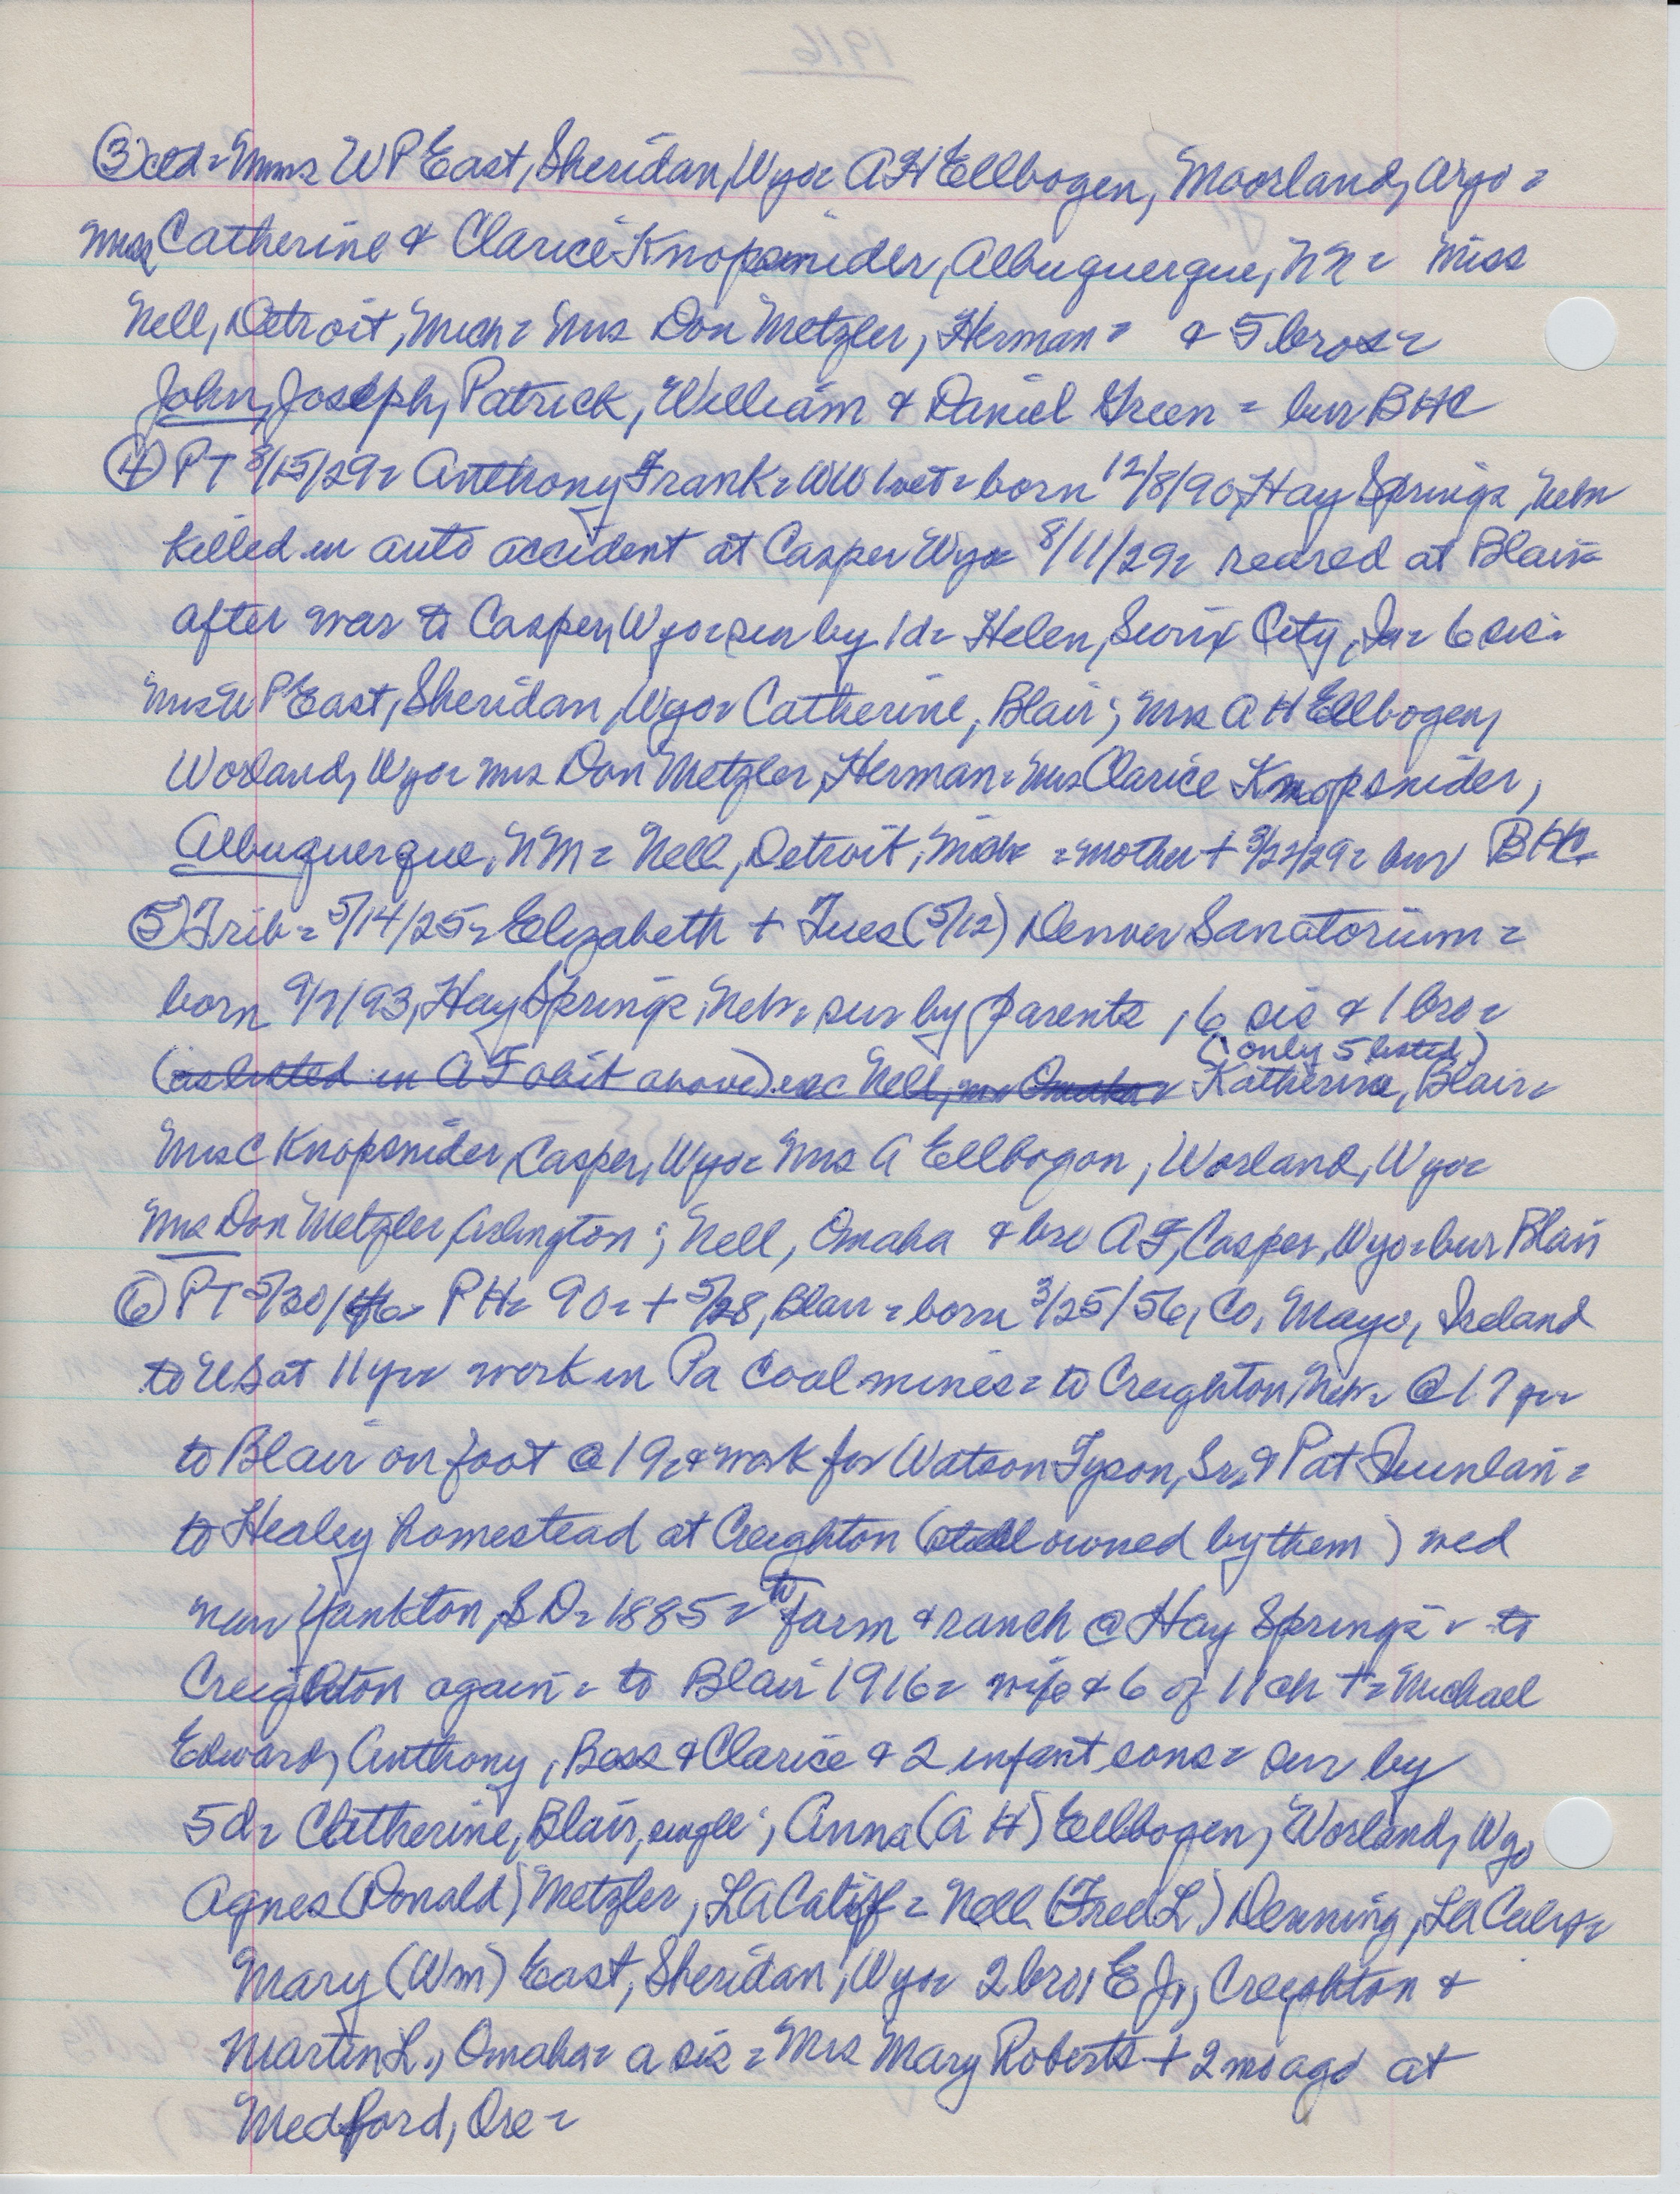 1916
③ctd = Mmes W P East, Sheridan, Wyo = A H Ellbogen, Moorland, Wyo =
Misses Catherine & Clarice Knopsnider, Albuquerque, NM = Miss
Nell, Detroit, Mich = Mrs Don Metzler, Herman = & 5 bros =
John, Joseph, Patrick, William & Daniel Green = bur BHC
④ PT 8/15/29 = Anthony Frank = WW1 vet = born 12/8/90, Hay Springs, Nebr
killed in auto accident at Casper Wyo 8/11/29 = reared at Blair =
after war to Casper, Wyo = sur by 1d = Helen, Sioux City, Ia = 6 sis =
Mrs W P East, Sheridan, Wyo = Catherine, Blair; Mrs A H Ellbogen,
Worland, Wyo = Mrs Don Metzler, Herman = Mrs Clarice Knopsnider,
Albuquerque, NM = Nell, Detroit, Mich = mother + 3/22/29 = bur BHC
⑤ Trib = 5/14/25 = Elizabeth + Tues (5/12) Denver Sanatorium =
born 9/7/93, Hay Springs, Nebr = sur by parents, 6 sis & 1 bro =
(only 5 listed)
(as listed in A F obit above) exc Nell, Omaha = Katherine, Blair =
Mrs C Knopsnider, Casper, Wyo = Mrs A Ellbogon, Worland, Wyo =
Mrs Don Metzler, Arlington; Nell, Omaha & bro A F, Casper, Wyo = bur Blair
⑥ PT 5/30/46 = P H = 90 = + 5/28, Blair = born 3/25/56, Co, Mayo, Ireland
to US at 11 yr = work in Pa coal mines = to Creighton, Nebr = @ 17 yr =
to Blair on foot @ 19 = & work for Watson Tyson, Sr, & Pat Quinlan =
to Healey homestead at Creighton (still owned by them) wed
near Yankton, S D = 1885 = to farm & ranch @ Hay Springs = to
Creighton again = to Blair 1916 = wife & 6 of 11 ch + = Michael
Edward, Anthony, Bess & Clarice & 2 infant sons = sur by
5d = Catherine, Blair, single; Anna (A H) Ellbogen, Worland, Wyo
Agnes (Donald) Metzler, LA Calif = Nell (Fred L) Denning, LA Calif =
Mary (Wm) East, Sheridan, Wyo = 2 bro, E J, Creighton &
Martin L., Omaha = a sis = Mrs Mary Roberts + 2 mo ago at
Medford, Ore =